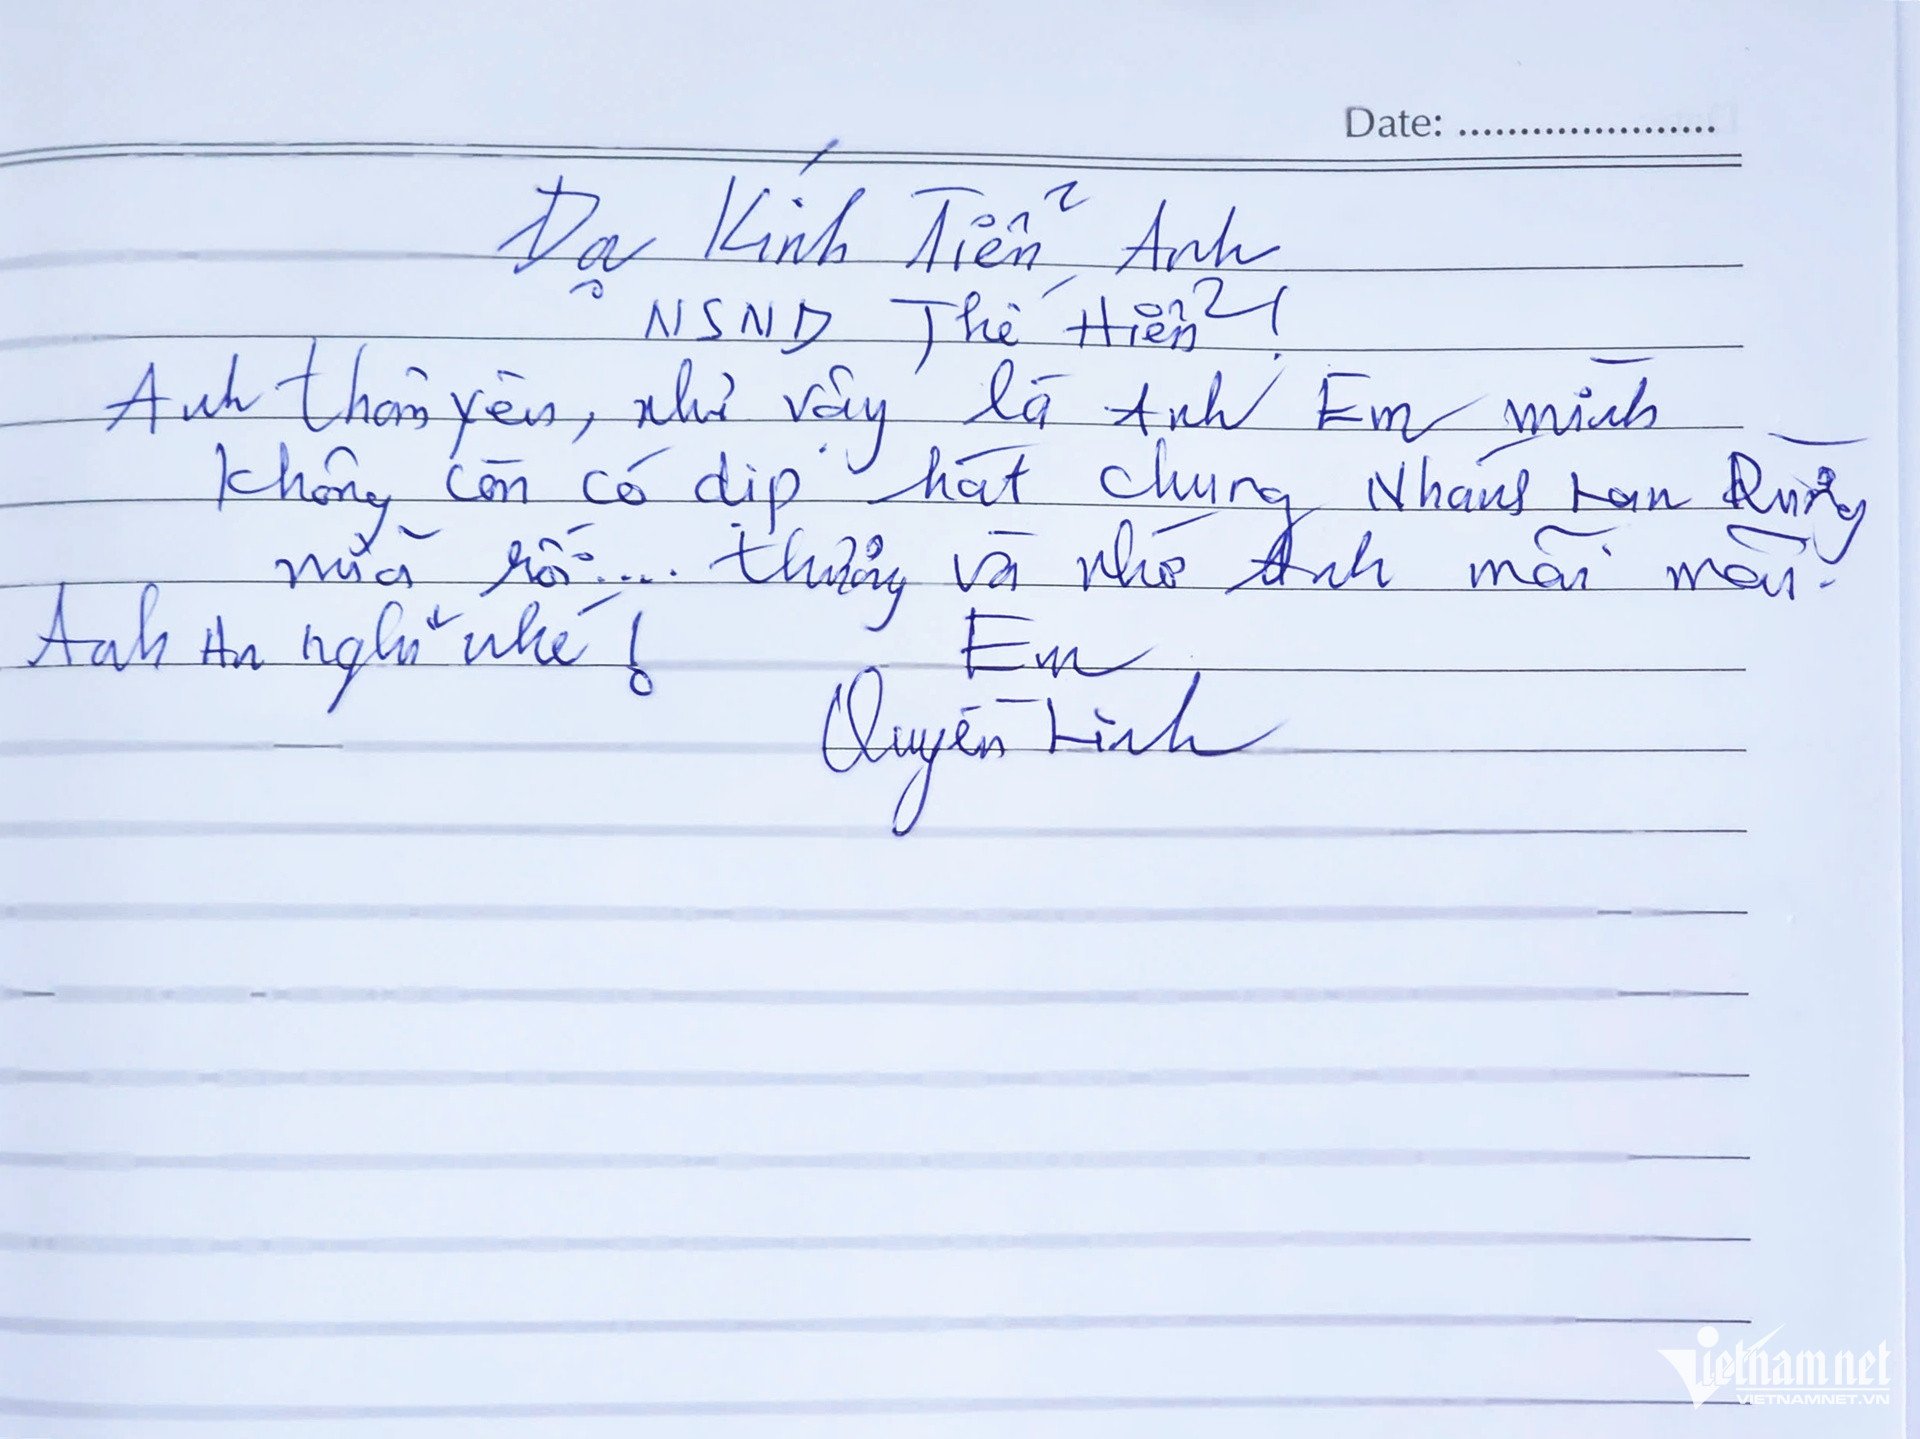 Date: .....................
Dạ Kính Tiễn Anh
NSND Thế Hiển!
Anh thân yêu, như vậy là Anh Em mình
không còn có dịp hát chung Nhánh Lan Rừng
nữa rồi.... thương và nhớ Anh mãi mãi.
Anh An nghỉ nhé!
Em
Quyền Linh
vietnamnet
VIETNAMNET.VN